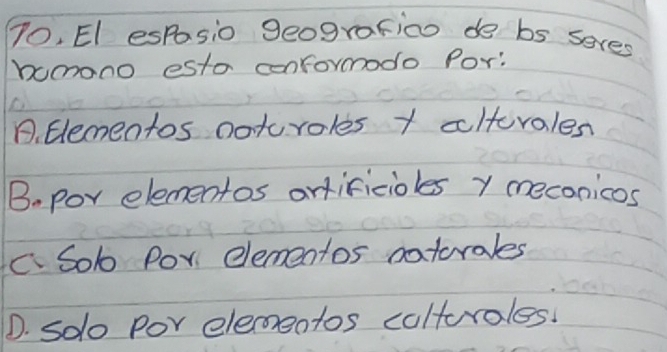 10. El espasio geografico de los seres
humano esta conformado Por:
A. Elementos naturales y culturales
B. por elementos artificiales y mecanicos
C. Solo Por elementos naturales
D. Solo por elementos culturales.